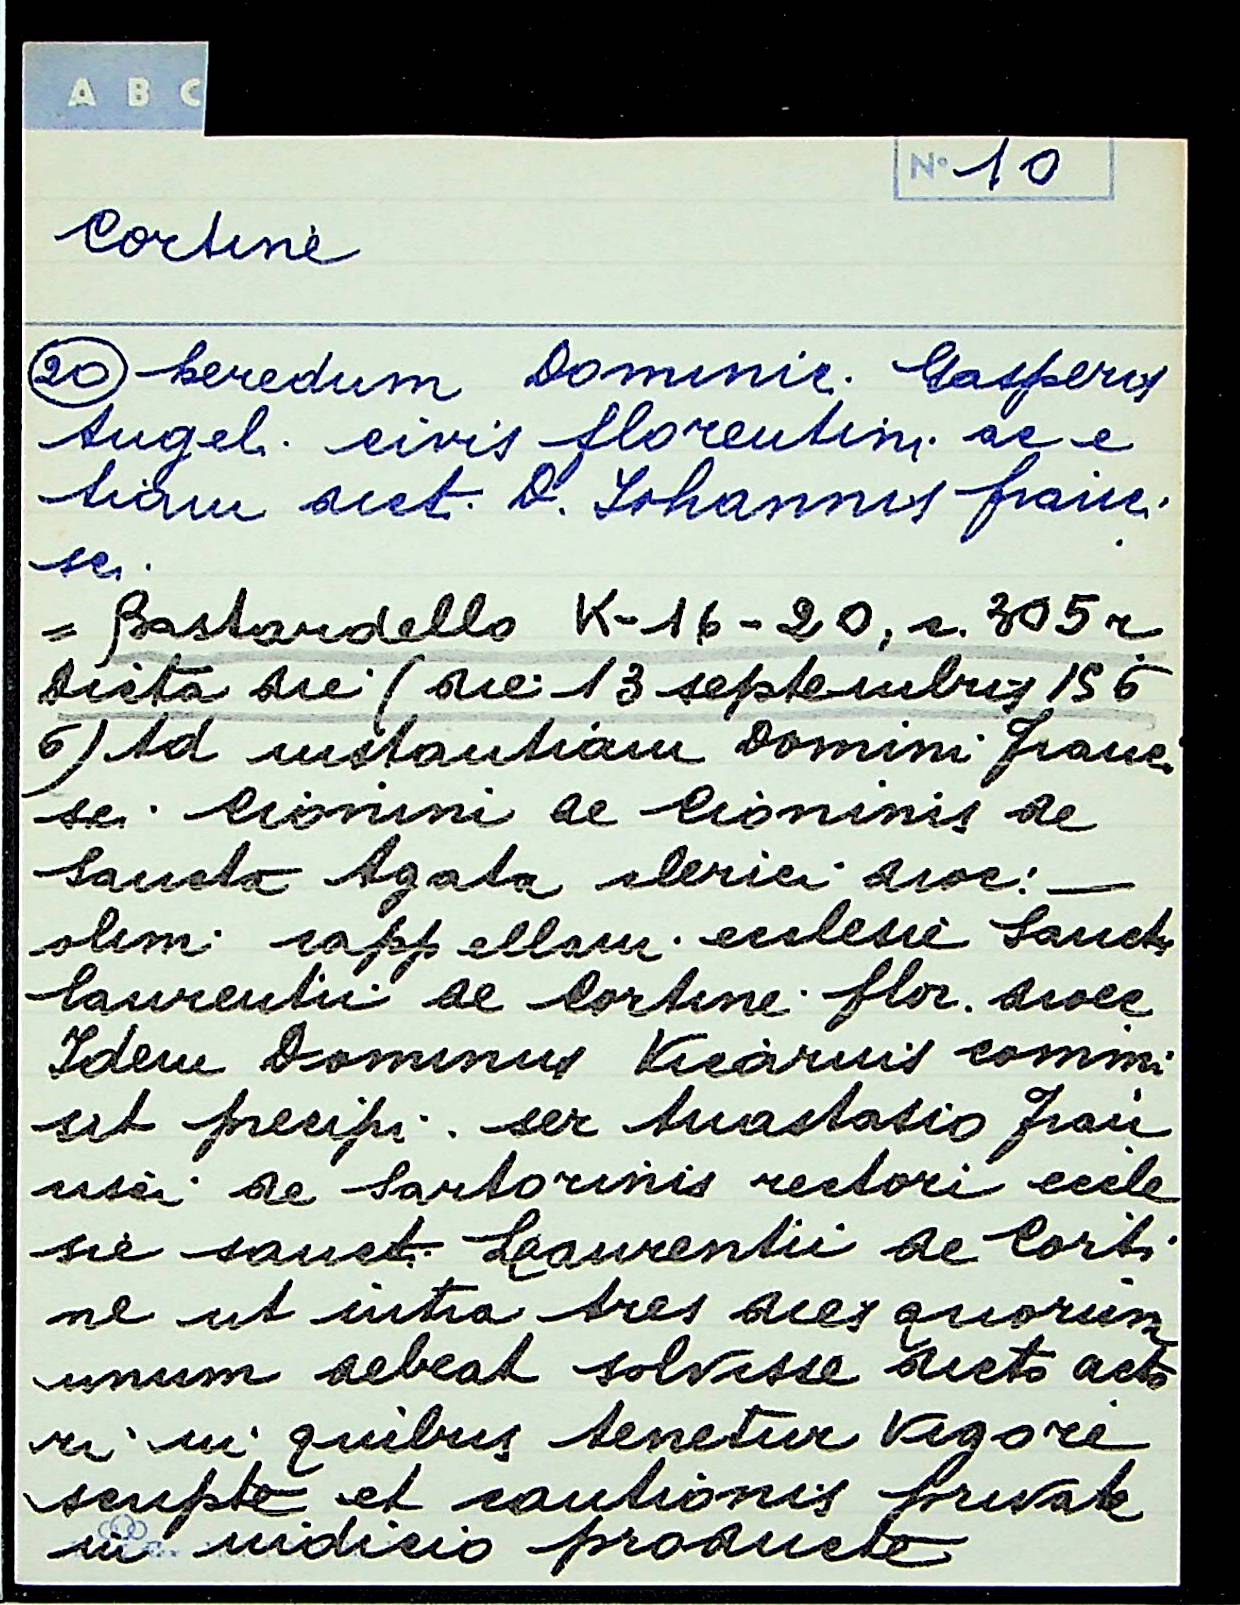 A B C
N° 10
Cortine
20 heredum Dominic. Gasperis
Angeli civis florentini ac e
tiam dict. D. Iohannis franci
sci.
= Bastardello K-16-20, c. 305 r.
Dicta die (die 13 septembris 156
6) Ad instantiam Domini franci
sci Cionini de Cioninis de
Sancta Agata clerici dioc: —
olim cappellani ecclesie Sancti
laurentii de Cortine flor. dioec
Idem Dominus Vicarius commi
sit precipi. ser Anastasio fran
cisci de Sartorinis rectori eccle
sie sanct. Laurentii de Corti
ne ut intra tres dies quorum
unum debeat solvisse dicto acto
ri in quibus tenetur vigore
scripte et cautionis private
in iudicio producte